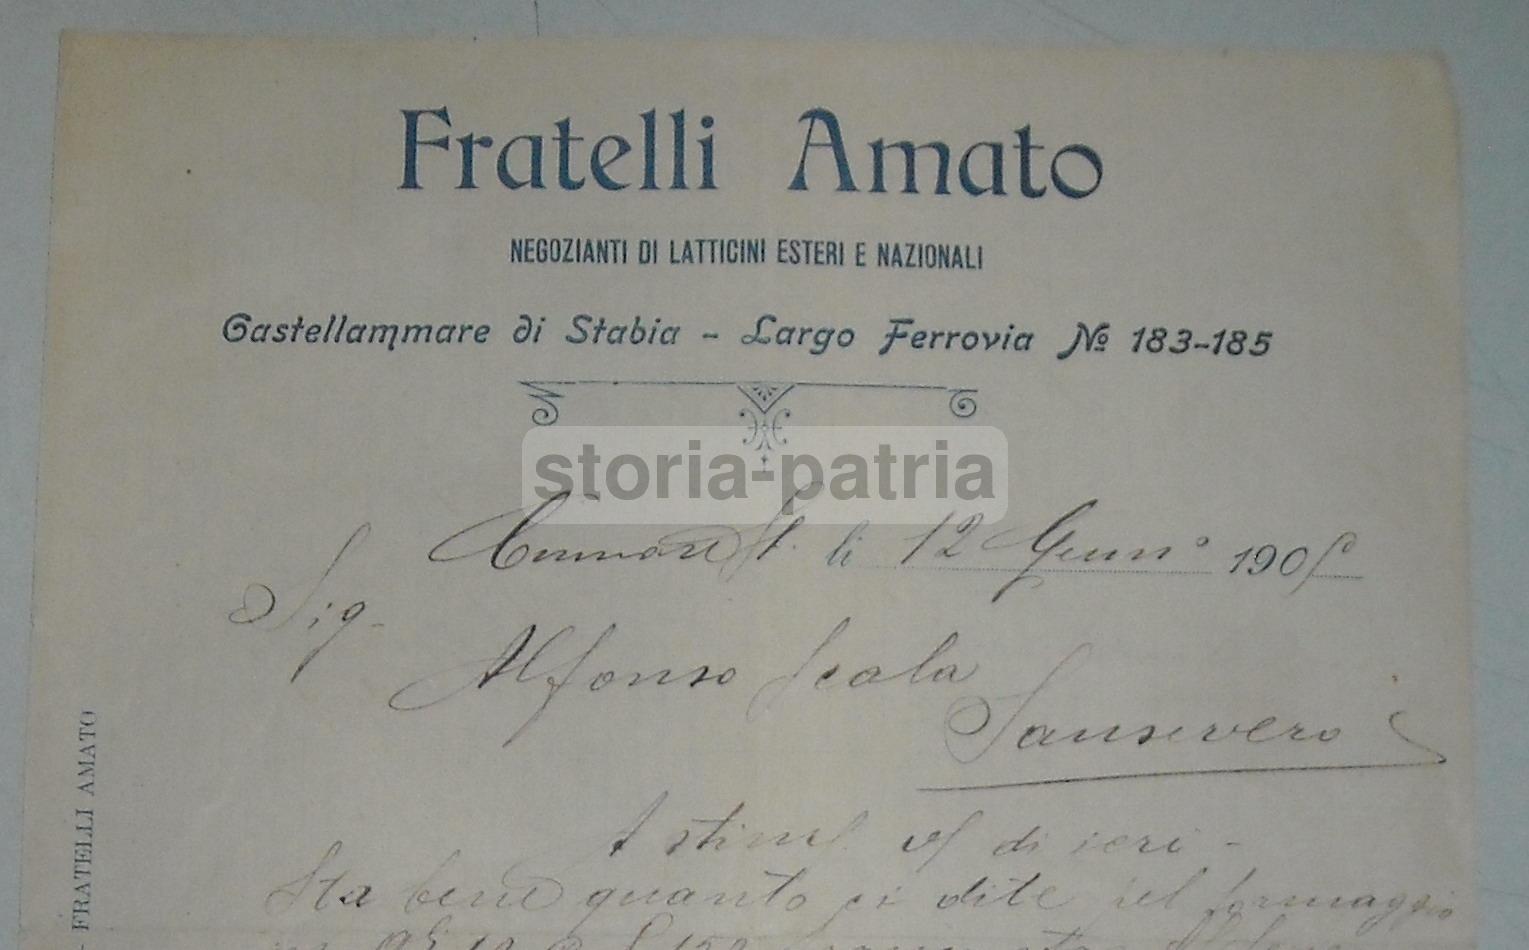 Fratelli Amato
NEGOZIANTI DI LATTICINI ESTERI E NAZIONALI
Castellammare di Stabia - Largo Ferrovia № 183-185
storia-patria
li 12 Genn° 190
Sig.
Alfonso Scala
Sansevero
A stim/ v/ di ieri -
Sta bene quanto ci dite pel formaggio
FRATELLI AMATO